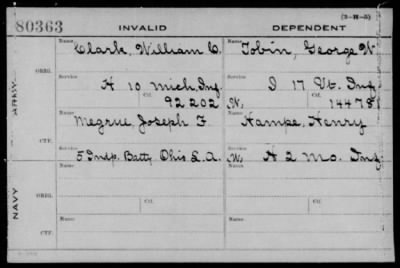 (3-H-5)
80363 INVALID DEPENDENT
Name Clark, William C. Name Tobin, George W
ORIG.
Service H 10 Mich. Inf. Service I 17 Vt. Inf.
Ctf. 92202 W, Ctf. 14478
ARMY
Name Megrue, Joseph F. Name Hampe, Henry
CTF.
Service 5 Indp. Batty. Ohio L.A. Service W, H 2 Mo. Inf.
NAVY
Name Name
ORIG.
Ctf. Ctf.
Name Name
CTF.